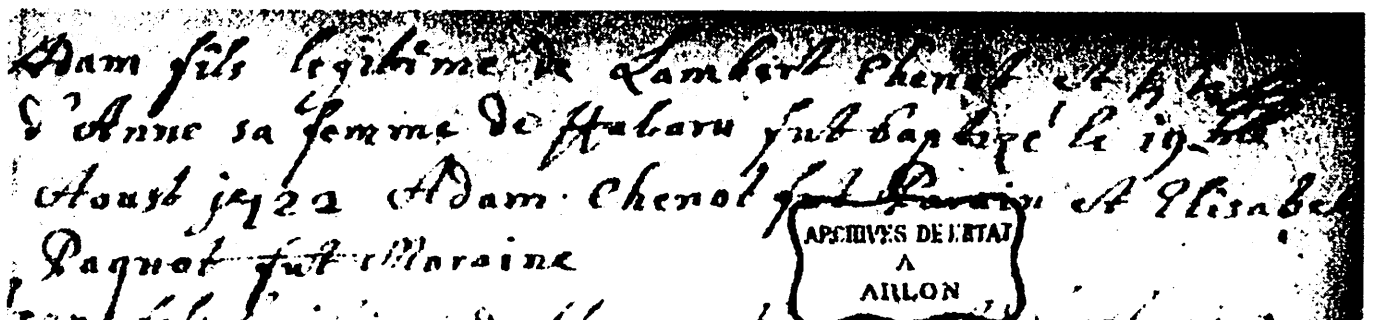 Adam fils legitime de Lambert Chenot et
d'Anne sa femme de Habaru fut baptizé le 19
Aoust 1722 Adam Chenot fut Parain et Elisabet
Paquot fut Maraine
ARCHIVES DE L'ETAT
A
ARLON